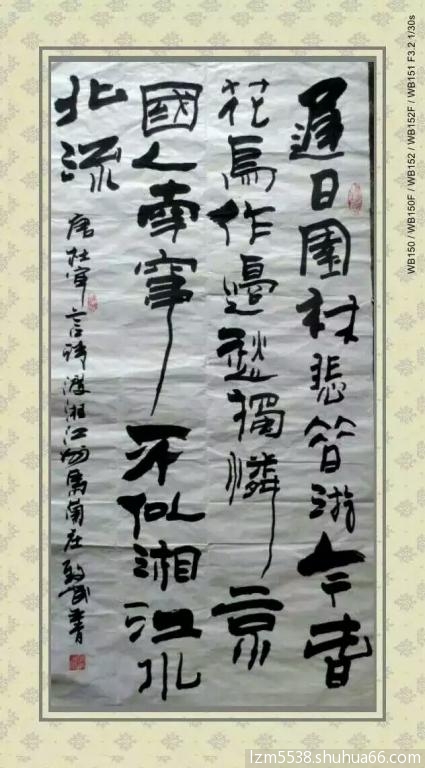 遲日園林悲昔游今春
花鳥作邊愁獨憐京
國人南竄不似湘江水
北流
唐杜審言詩渡湘江
WB150 / WB150F / WB152 / WB152F / WB151 F3.2 1/30s
lzm5538.shuhua66.com